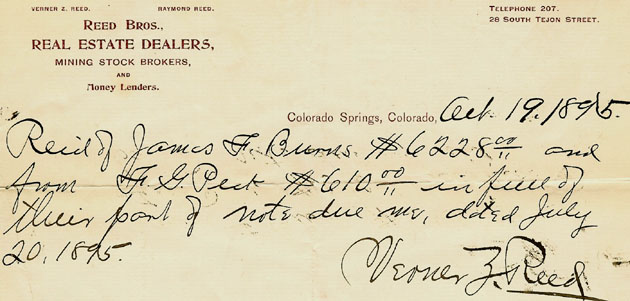 VERNER Z. REED. RAYMOND REED.
REED BROS.,
REAL ESTATE DEALERS,
MINING STOCK BROKERS,
AND
Money Lenders.
TELEPHONE 207.
28 SOUTH TEJON STREET.
Colorado Springs, Colorado, Oct. 19, 1895.
Recd of James F. Burns $6228.00 and
from F. G. Peck $610.00 in full of
their part of note due me, dated July
20, 1895.
Verner Z. Reed